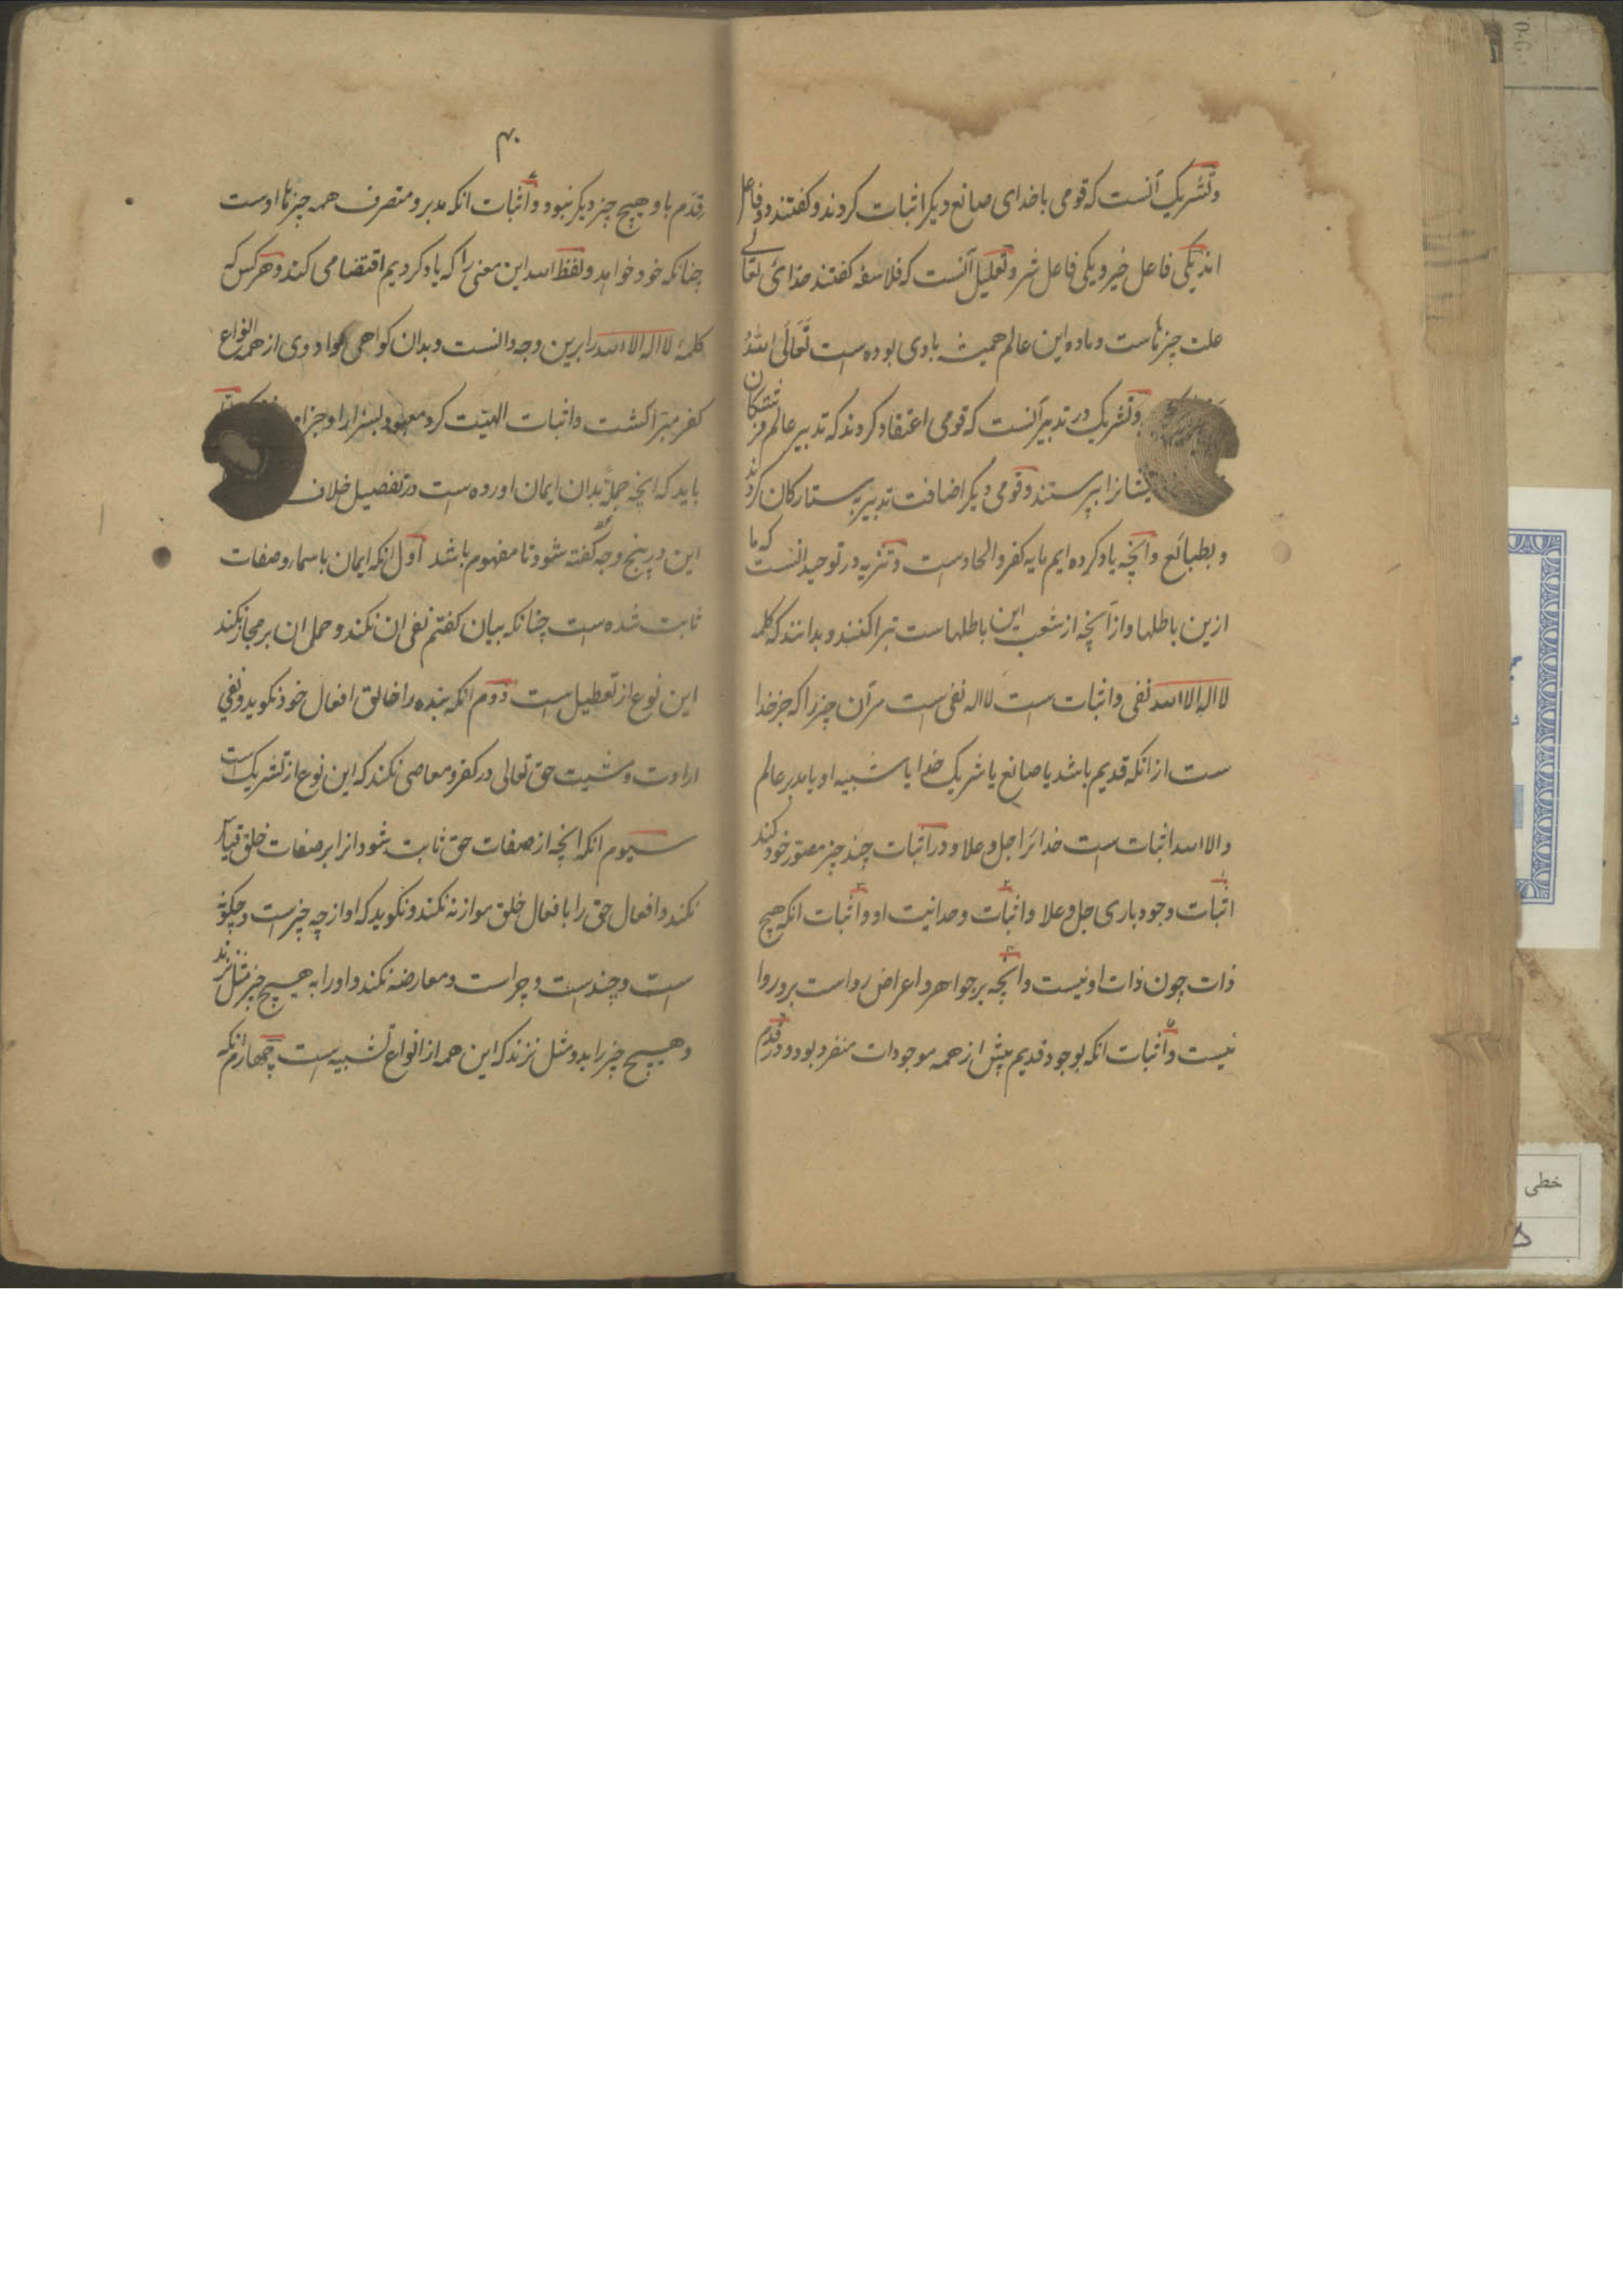 وتشریک آنست که قومی با خدای صانع دیکر اثبات کردند و کفتند دو فاعل
اند یکی فاعل خیر و یکی فاعل شر و تعلیل آنست که فلاسفه کفتند خدائ تعالے
علت چیزهاست و ماده این عالم همیشه با وی بوده است تَعَالَی اللهُ
وتشریک در تدبیر آنست که قومی اعتقاد کردند که تدبیر عالم فرشتکان
یشانرا بپرستند و قومی دیکر اضافت تدبیر بستارکان کردند
و بطبائع وآنچه یاد کرده ایم مایه کفر و الحاد است و تنزیه در توحید انست که ما
ازین باطلها و از آنچه از شعب این باطلهاست تبرا کنند و بدانند که کلمه
لا اله الا الله نفی و اثبات است لا اله نفی است مر آن چیز را که جز خدا
ست از انکه قدیم باشد یا صانع یا شریک خدا یا شبیه او یا مدبر عالم
والا الله اثبات است خدائرا جل و علا و در اثبات چند چیز مصور خود کند
اثبات وجود باری جل و علا و اثبات وحدانیت او و اثبات انکه هیچ
ذات چون ذات او نیست و انچه بر جواهر و اعراض رواست برو روا
نیست و اثبات انکه بوجود قدیم پیش از همه موجودات منفرد بود و در قدم
۴۰
رقدم با و هیچ چیز دیکر نبود و اثبات انکه مدبر و متصرف همه چیزها اوست
چنانکه خود خواهد و لفظ الله این معنی را که یاد کردیم اقتضا می کند و هر کس که
کلمهٔ لا اله الا الله را برین وجه دانست و بدان کواهی داد وی از همه انواع
کفر مبرا کشت و اثبات الهیت کرد معبود بسزا را و جز او
باید که انچه جملةً بدان ایمان اورده است در تفصیل خلاف
این در پنج وجه کفته شود تا مفهوم باشد اول انکه ایمان باسماء و صفات
ثابت شده است چنانکه بیان کفتم نفی ان نکند و حمل ان بر مجاز نکند
این نوع از تعطیل است دوم انکه بنده را خالق افعال خود نکوید و نفی
ارادت و مشیت حق تعالی در کفر و معاصی نکند که این نوع از تشریک است
سیوم انکه انچه از صفات حق ثابت شود انرا بر صفات خلق قیاس
نکند و افعال حق را با فعال خلق موازنه نکند و نکوید که او از چه چیزست و چکونه
است و چندست و چراست و معارضه نکند و او را به هیچ چیز مثل نزند
و هیچ چیز را بدو مثل نزند که این همه از انواع تشبیه است چهارم انکه
خطی
۵